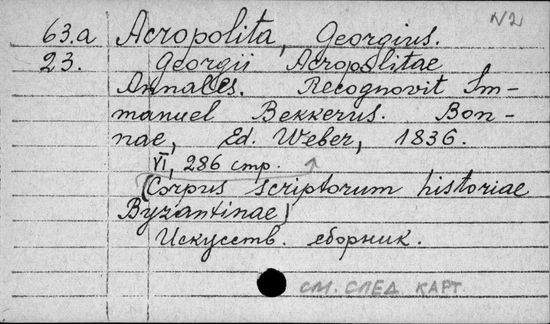 N2
63.a Acropolita, Georgius.
23. Georgii Acropolitae
Annales. Recognovit Im-
manuel Bekkerus. Bon-
nae, Ed. Weber, 1836.
VI, 286 стр.
(Corpus scriptorum historiae
Byzantinae)
Искусств. сборник.
СМ. СЛЕД. КАРТ